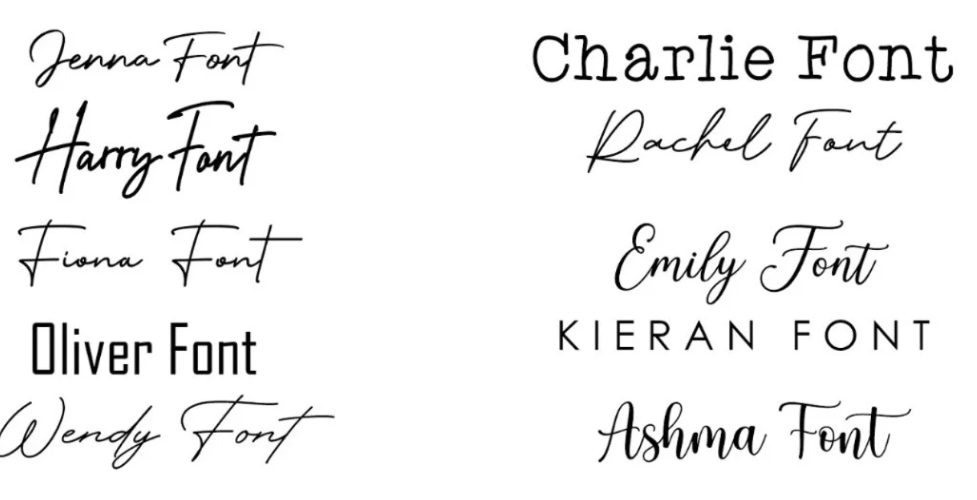 Jenna Font
Harry Font
Fiona Font
Oliver Font
Wendy Font
Charlie Font
Rachel Font
Emily Font
KIERAN FONT
Ashma Font